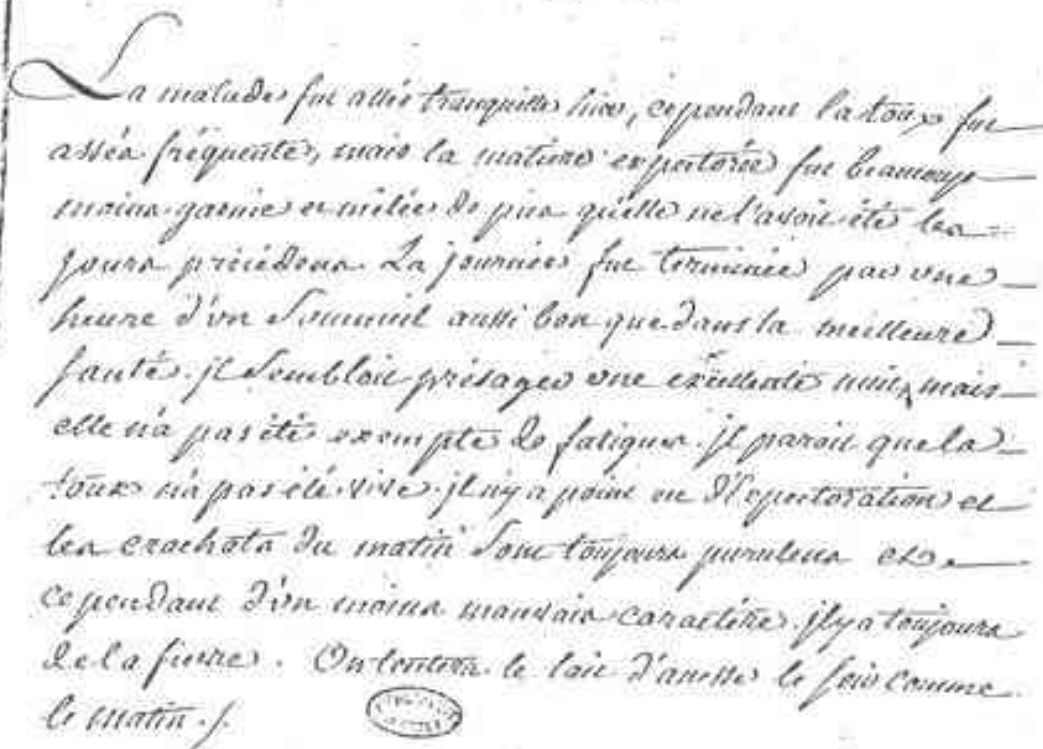 La malade fut assés tranquille hier, cependant la toux fut
assés fréquente, mais la matiere expectorée fut beaucoup
moins garnie et mêlée de pus qu'elle ne l'avoit été les
jours précédens. La journée fut terminée par une
heure d'un sommeil aussi bon que dans la meilleure
santé. il sembloit présager une excellente nuit, mais
elle n'a pas été exempte de fatigues. il paroit que la
toux n'a pas été vive. il n'y a point eu d'expectoration et
les crachats du matin sont toujours purulens et
cependant d'un moins mauvais caractère. il y a toujours
de la fievre. On tentera le lait d'anesse le soir comme
le matin ./.